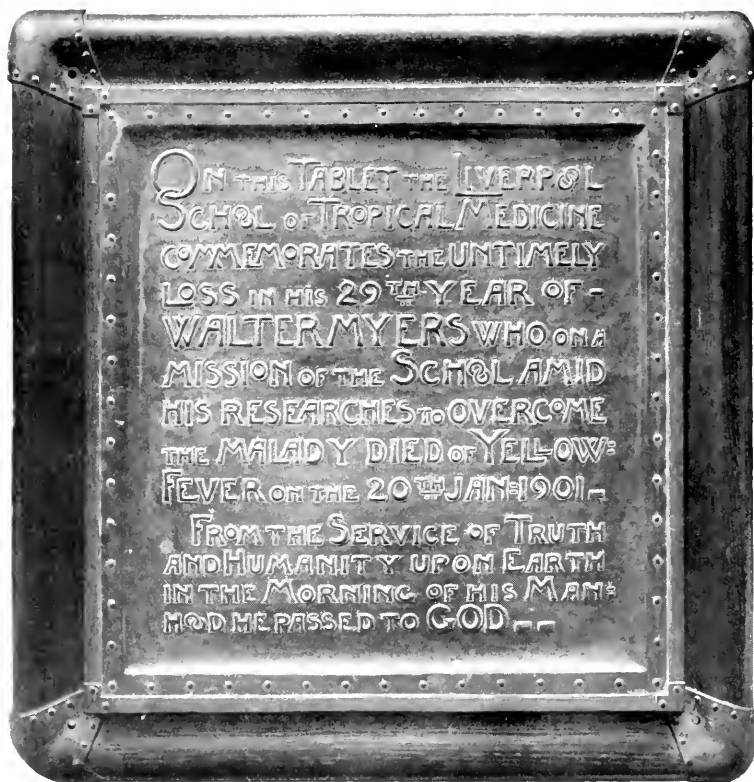 ON THIS TABLET THE LIVERPOOL
SCHOOL OF TROPICAL MEDICINE
COMMEMORATES THE UNTIMELY
LOSS IN HIS 29TH YEAR OF-
WALTER MYERS WHO ON A
MISSION OF THE SCHOOL AMID
HIS RESEARCHES TO OVERCOME
THE MALADY DIED OF YELLOW=
FEVER ON THE 20TH JAN:1901-
FROM THE SERVICE OF TRUTH
AND HUMANITY UPON EARTH
IN THE MORNING OF HIS MAN=
HOOD HE PASSED TO GOD--